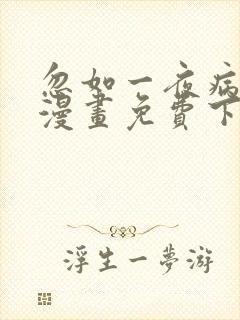 忽如一夜病
漫畫免費下
浮生一夢游